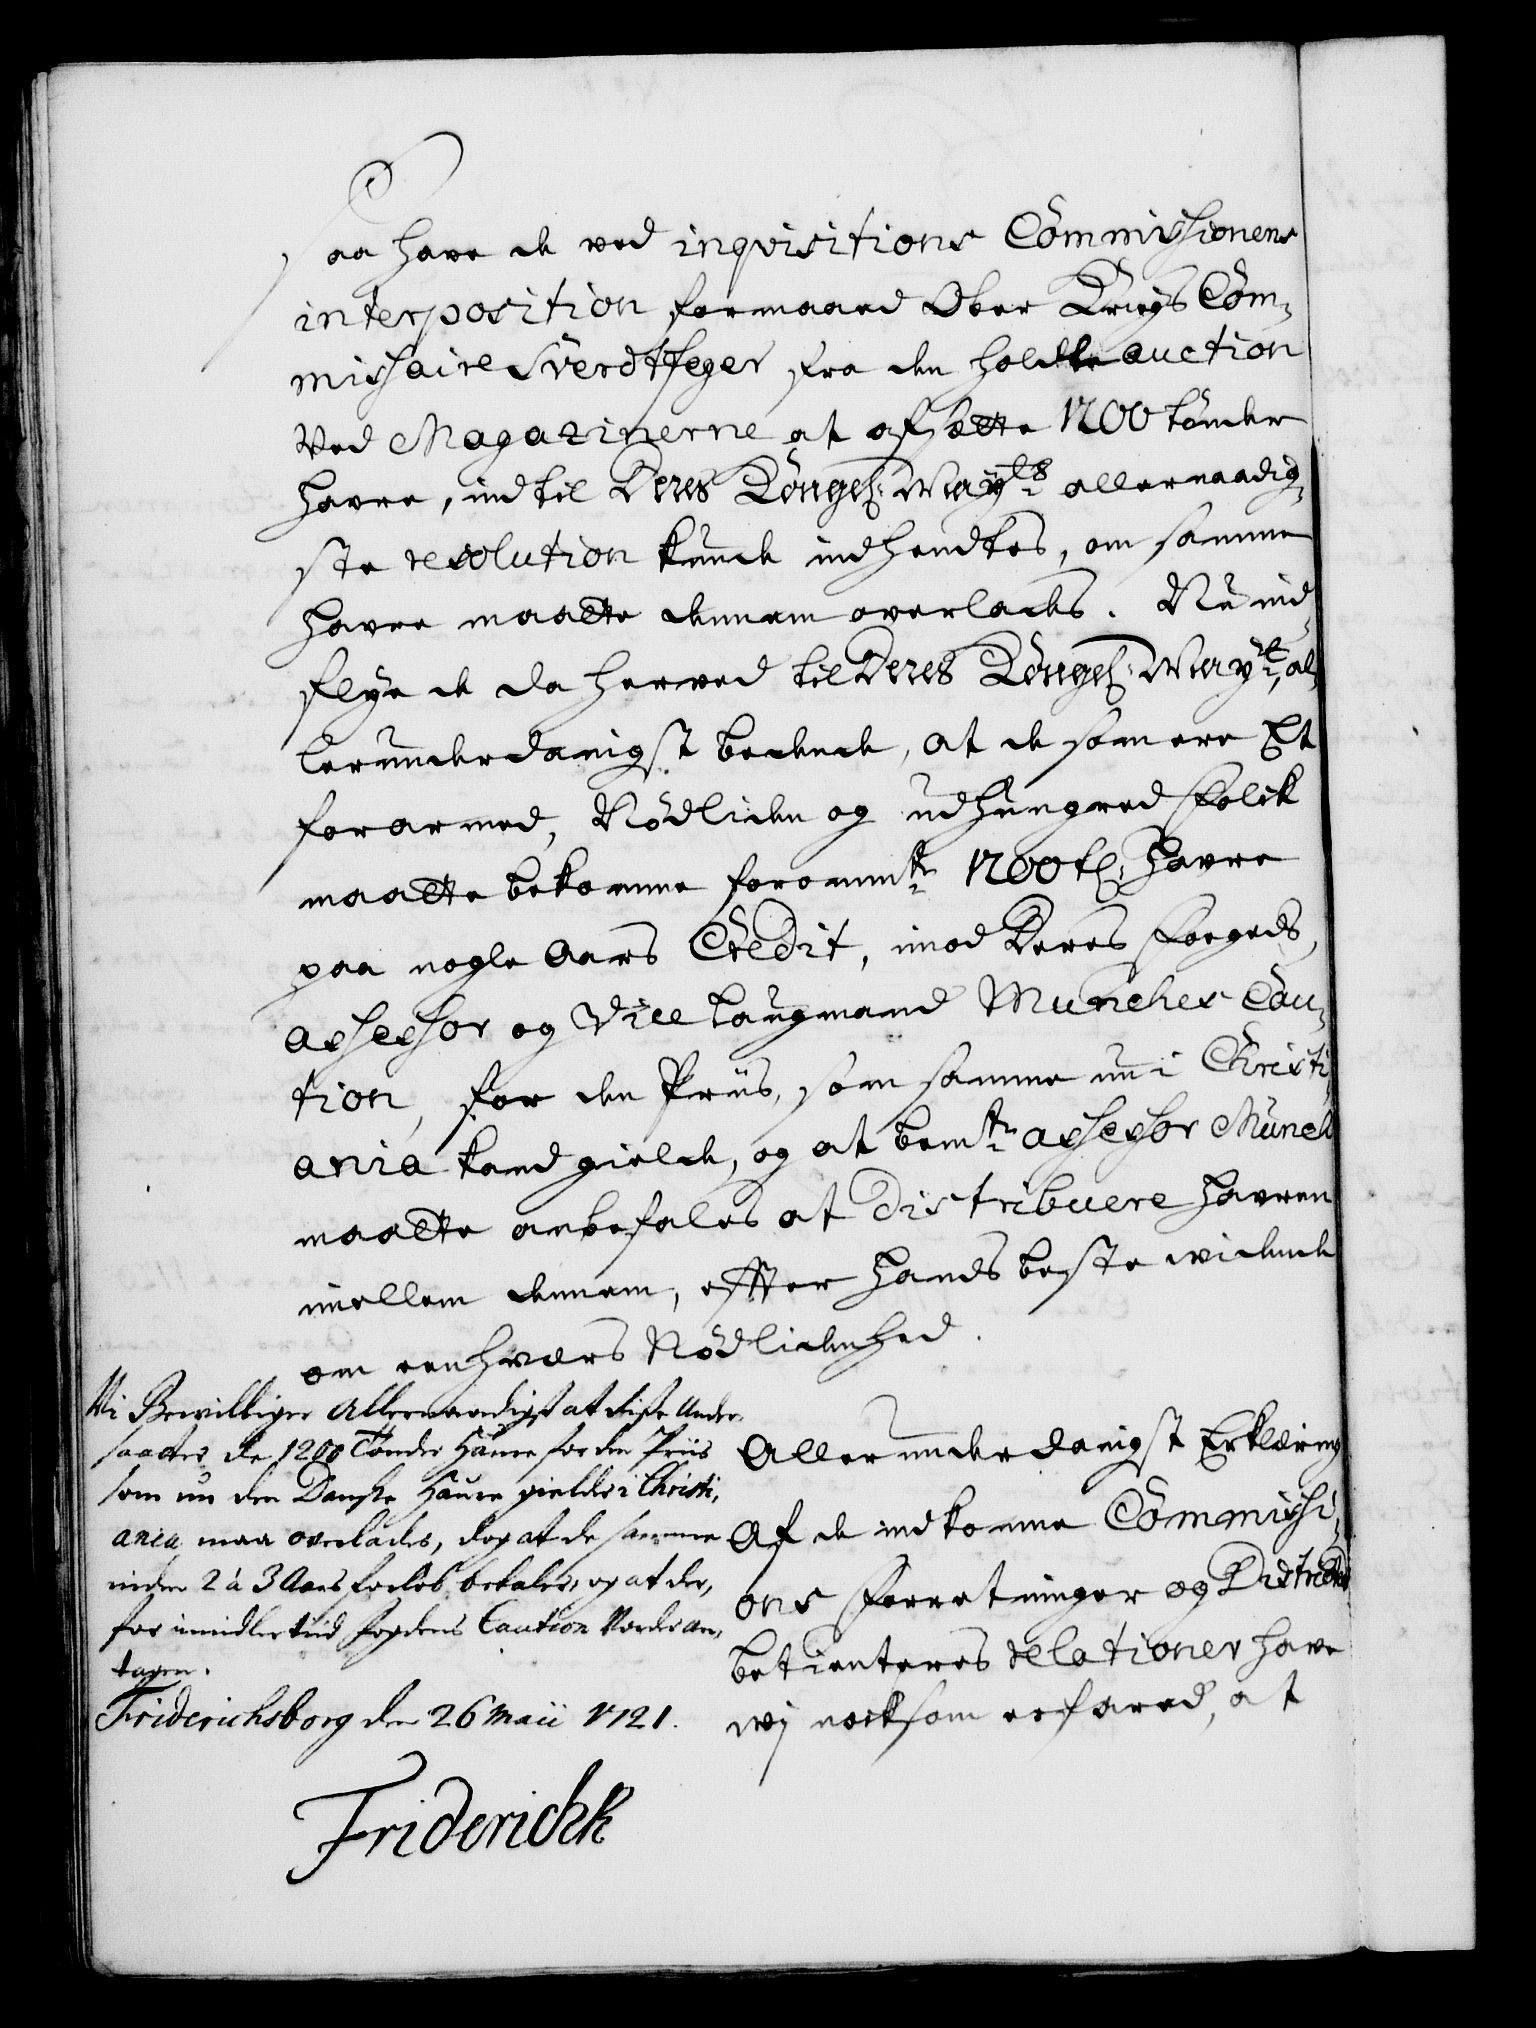 Saa have de ved inqvisitions Commissionens
interposition formaaed Ober Krigs Com-
missaire Sverdtfeger fra den holdte auction
ved Magazinerne at afsætte 1200 tönder
havre, indtil Deres Kongel: May:ts allernaadig-
ste resolution kunde indhendtes, om samme
havre maatte dennem overlades. Nu ind-
flye de da herved til Deres Kongel: May:t, al-
lerunderdanigst bedende, at de som ere Et
forarmed, Nödliden og udhungred folck
maatte bekomme forommte 1200 t: Havre
paa nogle Aars Credit, imod Deres fogeds,
assessor og Vice Laugmand Munches Cau-
tion, for den Priis, som samme nu i Christi-
ania kand gielde, og at bemte assessor Munch
maatte anbefales at distribuere havren
imellem dennem, effter hands beste vidende
om eenhvers Nödlidenhed.
Vi Bevilliger Allernaadigst at disse Under-
saatter de 1200 Tönder Haure for den Priis
som nu den Danske Haure gielder i Christi-
ania maa overlades, dog at de samme
inden 2 à 3 Aars forlöb betales, og at der-
for imidlertiid fogdens Caution Vorder an-
tagen.
Friderichsborg den 26 Maii 1721.
Friderich R
Allerunderdanigst Erklæring
Af de indkomne Commissi-
ons forretninger og District
betienteres relationer have
wj nocksom erfared, at